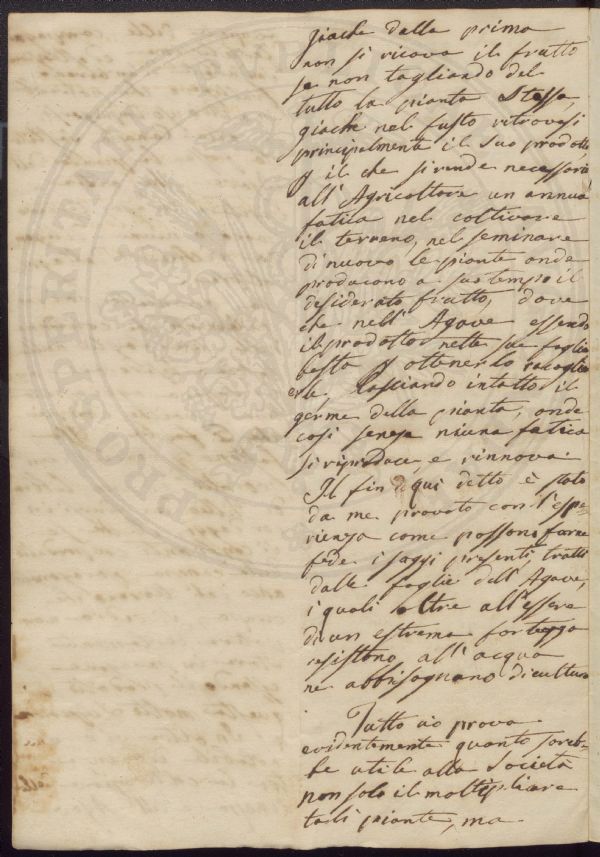 giache dalla prima
non si ricava il frutto
se non tagliando del
tutto la pianta Stessa,
giache nel fusto ritrovasi
principalmente il suo prodotto,
p il che si rende necessaria
all' Agricoltore un annua
fatica nel coltivare
il terreno, nel seminare
di nuovo le piante onde
producono a suo tempo il
desiderato frutto, dove
che nell' Agave essendo
il prodotto nelle sue foglie
basta p ottenerlo racoglier
le, lasciando intatto il
germe della pianta, onde
così senza niuna fatica
si riproduce, e rinnova.
Il fin qui detto è stato
da me provato con l'espe-
rienza come possono farne
fede i saggi presenti, tratti
dalle foglie dell' Agave,
i quali oltre all'essere
di un estrema fortezza
resistono all'acqua
ne abbisognano di cultura
Tutto ciò prova
evidentemente quanto sareb-
be utile alla Società
non solo il moltipliare
tali piante, ma
PROSPERI LANI